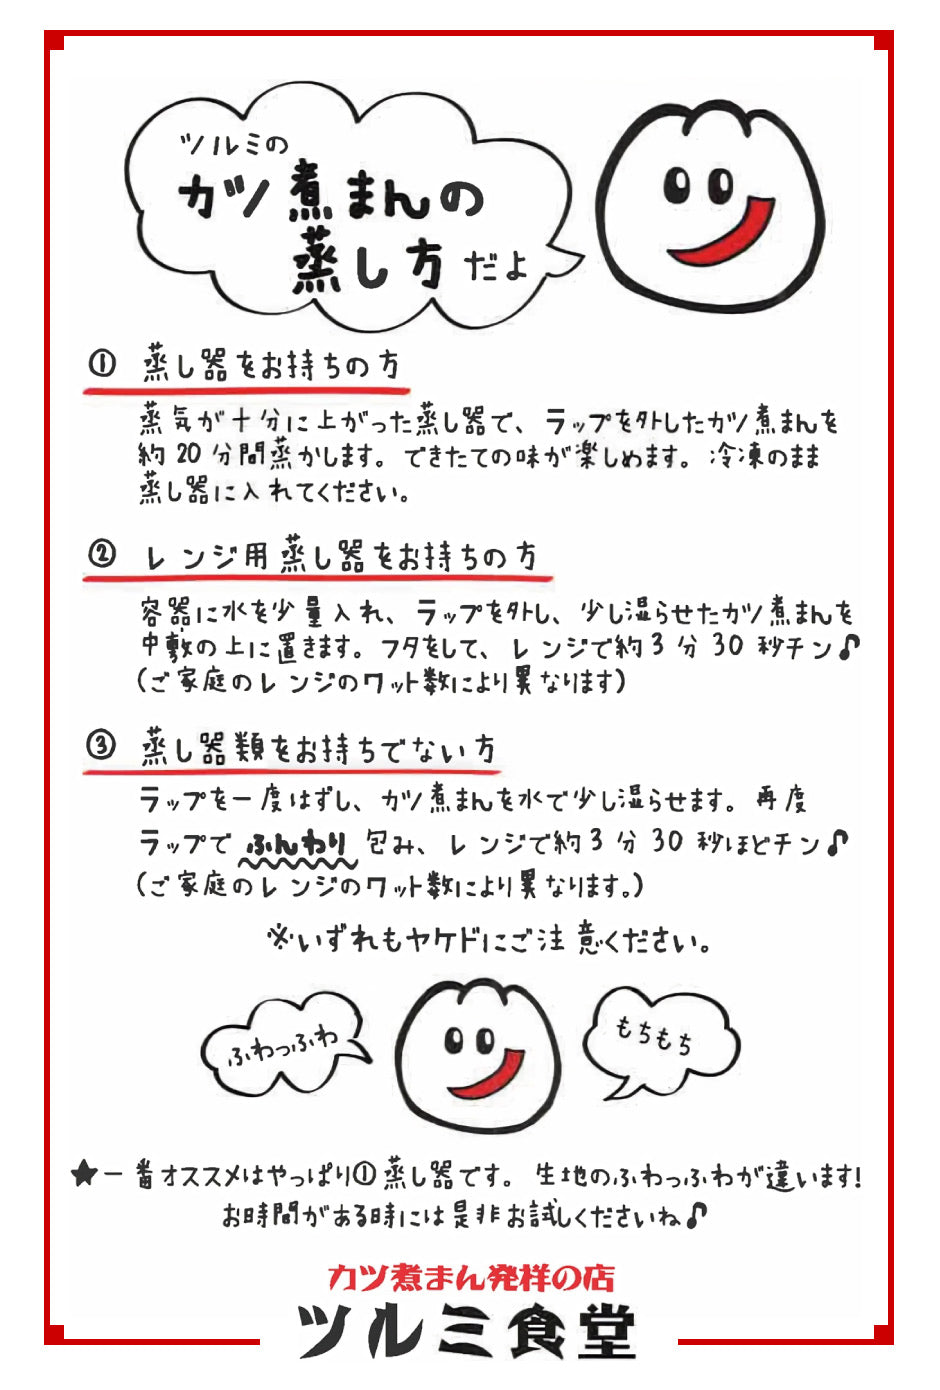 ツルミの
カツ煮まんの
蒸し方だよ
① 蒸し器をお持ちの方
蒸気が十分に上がった蒸し器で、ラップを外したカツ煮まんを
約20分間蒸かします。できたての味が楽しめます。冷凍のまま
蒸し器に入れてください。
② レンジ用蒸し器をお持ちの方
容器に水を少量入れ、ラップを外し、少し湿らせたカツ煮まんを
中敷の上に置きます。フタをして、レンジで約3分30秒チン♪
(ご家庭のレンジのワット数により異なります)
③ 蒸し器類をお持ちでない方
ラップを一度はずし、カツ煮まんを水で少し湿らせます。再度
ラップでふんわり包み、レンジで約3分30秒ほどチン♪
(ご家庭のレンジのワット数により異なります。)
※いずれもヤケドにご注意ください。
ふわっふわ
もちもち
★一番オススメはやっぱり①蒸し器です。生地のふわっふわが違います!
お時間がある時には是非お試しくださいね♪
カツ煮まん発祥の店
ツルミ食堂